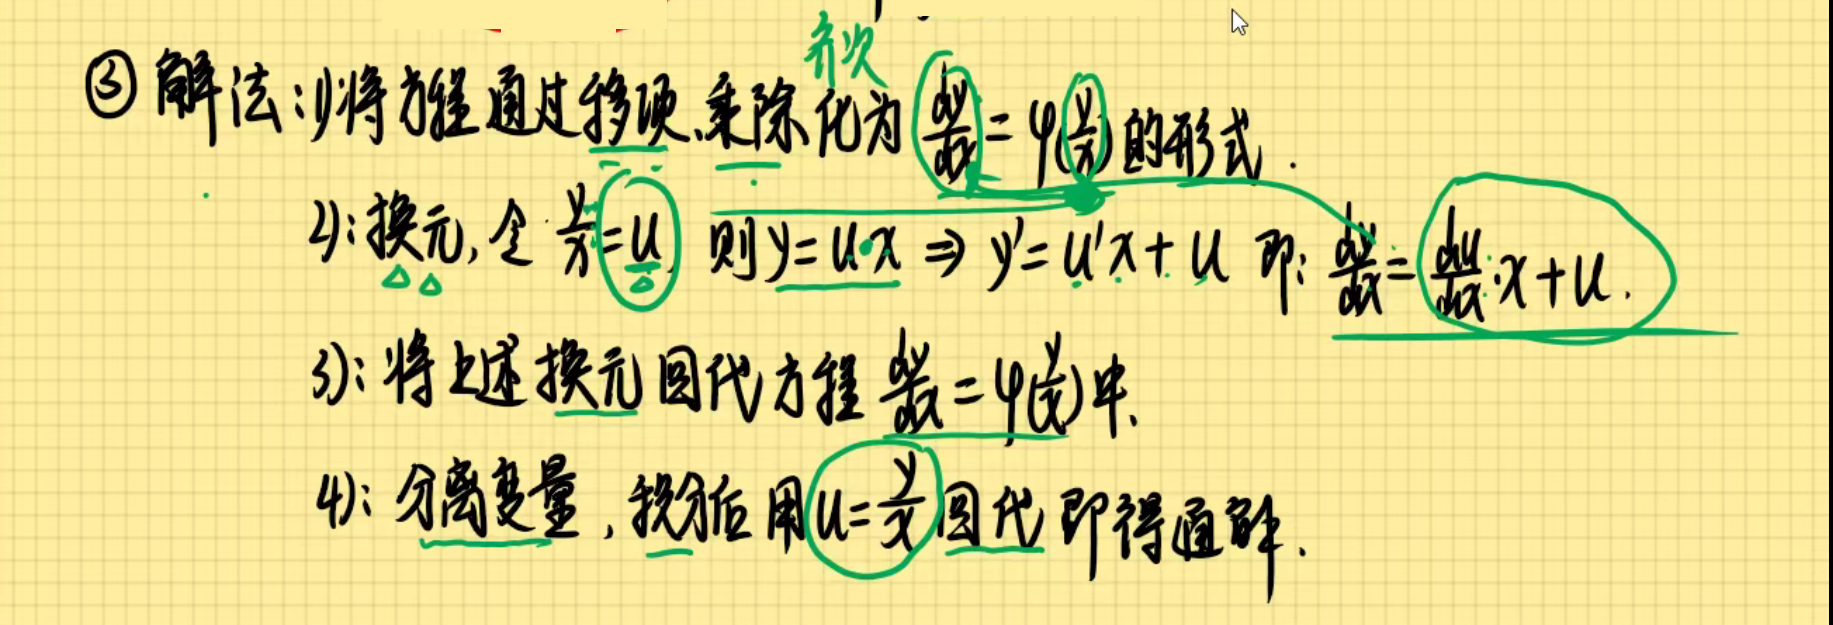 齐次
③ 解法：1)将方程通过移项、乘除化为 dy/dx = φ(y/x) 的形式.
2): 换元, 令 y/x = u, 则 y = u·x ⇒ y' = u'x + u 即: dy/dx = du/dx·x + u.
3): 将上述换元回代方程 dy/dx = φ(y/x) 中.
4): 分离变量, 积分后用 u = y/x 回代即得通解.